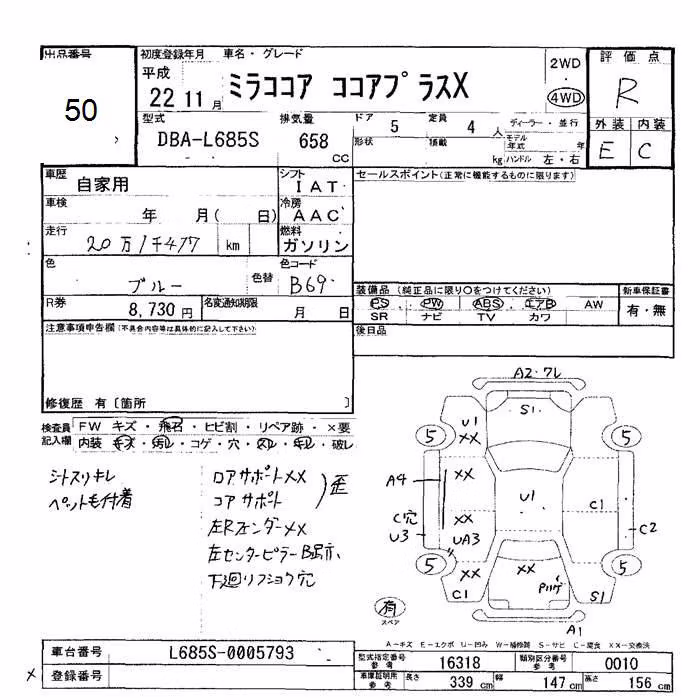 出品番号
50
初度登録年月 車名・グレード
平成
22 11 月
ミラココア ココアプラスX
2WD
4WD
評価点
R
型式
DBA-L685S
排気量
658
CC
ドア 5
定員 4 人
形状
積載 kg
ディーラー・並行
モデル年式 年
ハンドル 左・右
外装 内装
E C
車歴
自家用
シフト
IAT
車検
年 月( 日)
冷房
AAC
走行
20万1千477 km
燃料
ガソリン
色
ブルー
色替
色コード
B69
R券
8,730 円
名変通知期限
月 日
セールスポイント(正常に機能するものに限ります)
装備品 (純正品に限り○をつけてください)
PS PW ABS エアB AW
SR ナビ TV カワ
新車保証書
有・無
後日品
注意事項申告欄(不具合内容等は具体的に記入して下さい)
修復歴 有〔箇所 〕
検査員記入欄
FW キズ・飛石・ヒビ割・リペア跡・×要
内装 キズ・汚レ・コゲ・穴・スレ・キレ・破レ
シートスリキレ
ペット毛付着
ロアサポートXX
コアサポート
歪
左Rフェンダー XX
左センターピラーB跡
下廻リフショク穴
A2・フレ
S1
U1
XX
5
5
A4
XX
XX
U1
C1
C穴
U3
UA3
C2
5
5
XX
XX
C1
S1
Pハゲ
有
スペア
A1
A-キズ E-エクボ U-凹み W-補修跡 S-サビ C-腐食 XX-交換済
車台番号
L685S-0005793
× 登録番号
型式指定番号
参考
16318
類別区分番号
参考
0010
車庫証明用
参考
長さ 339 cm
幅 147 cm
高さ 156 cm